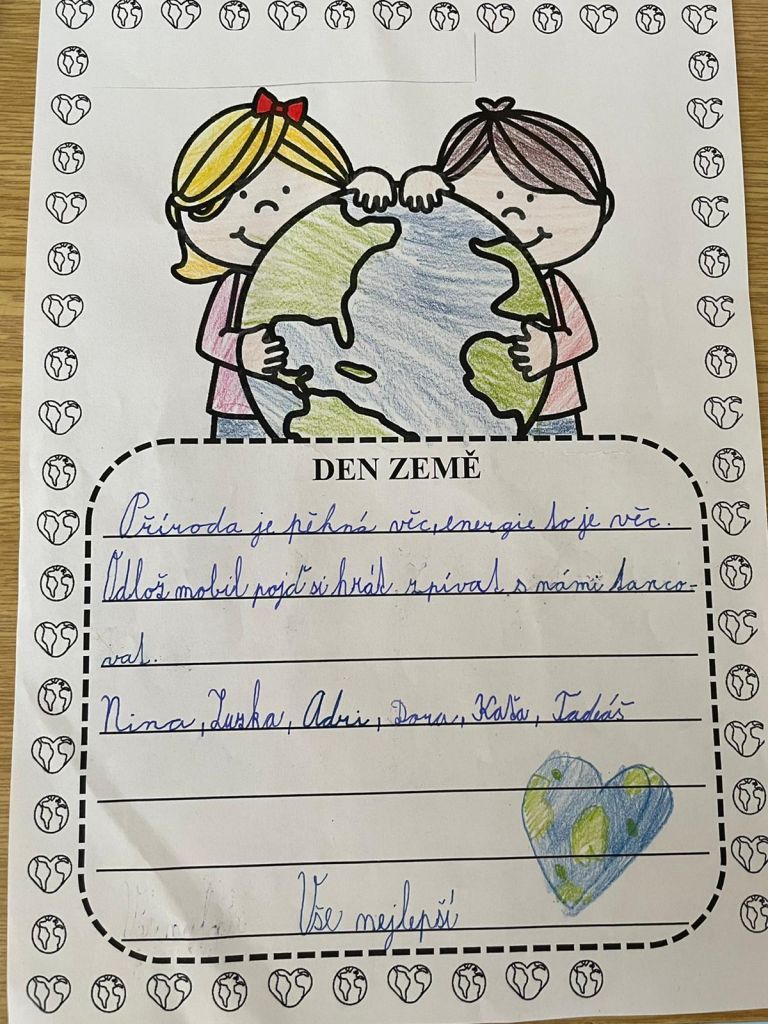 DEN ZEMĚ
Příroda je pěkná věc, energie to je věc.
Odlož mobil pojď si hrát zpívat s námi tanco-
vat.
Nina, Zuzka, Adri, Dora, Kaťa, Tadeáš
Vše nejlepší